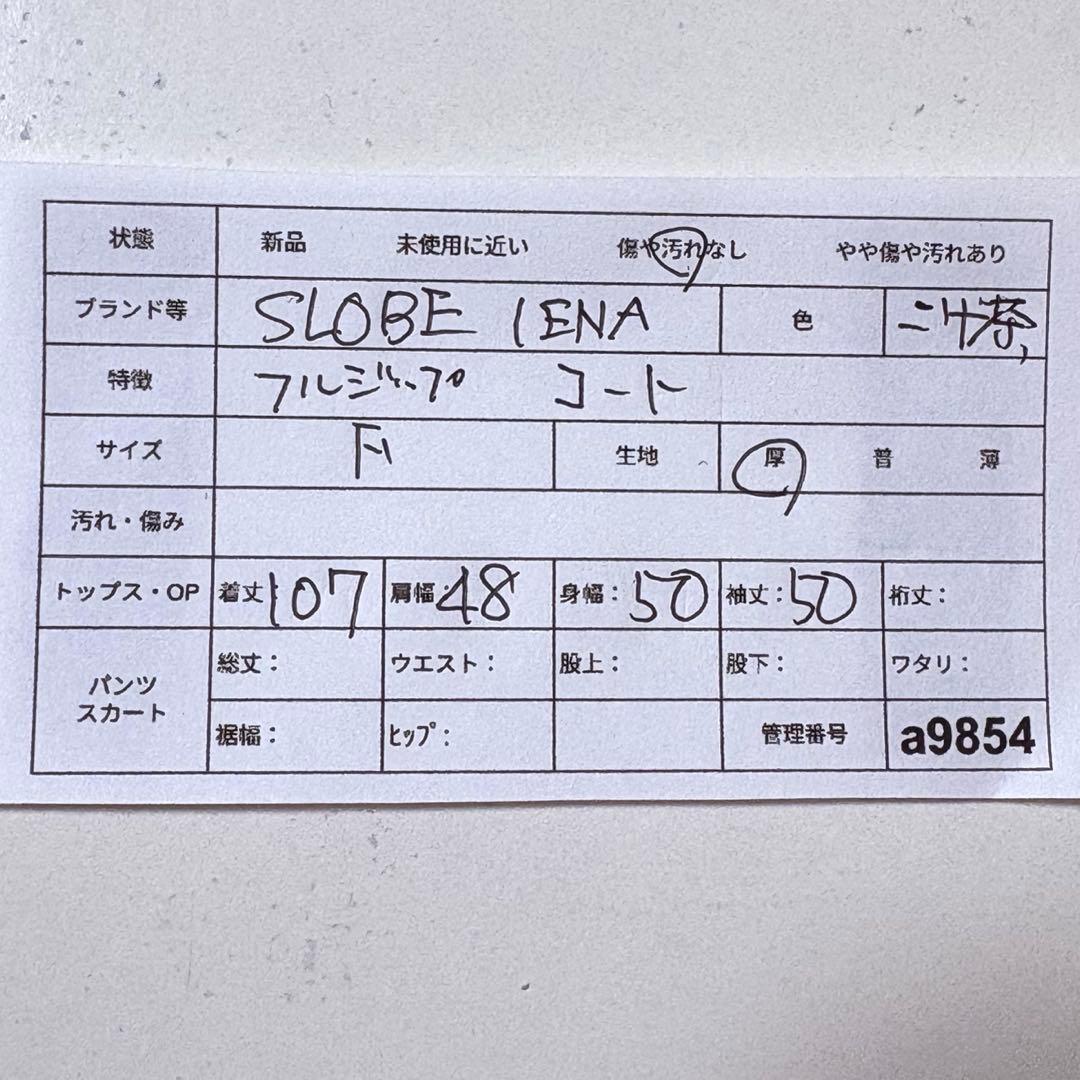 状態 新品 未使用に近い 傷や汚れなし やや傷や汚れあり
ブランド等 SLOBE IENA 色 こげ茶
特徴 フルジップ コート
サイズ F 生地 厚 普 薄
汚れ・傷み
トップス・OP 着丈:107 肩幅:48 身幅:50 袖丈:50 裄丈:
パンツ スカート
総丈: ウエスト: 股上: 股下: ワタリ:
裾幅: ﾋｯﾌﾟ: 管理番号 a9854